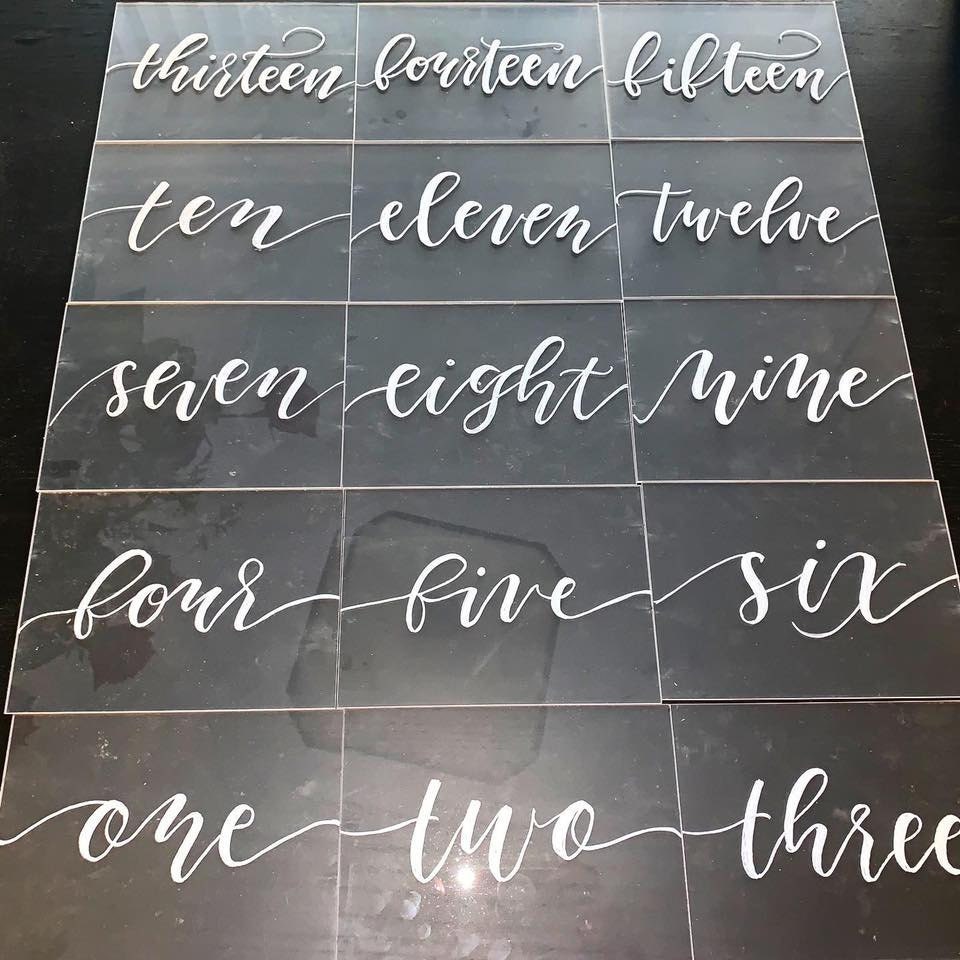 thirteen fourteen fifteen
ten eleven twelve
seven eight nine
four five six
one two three